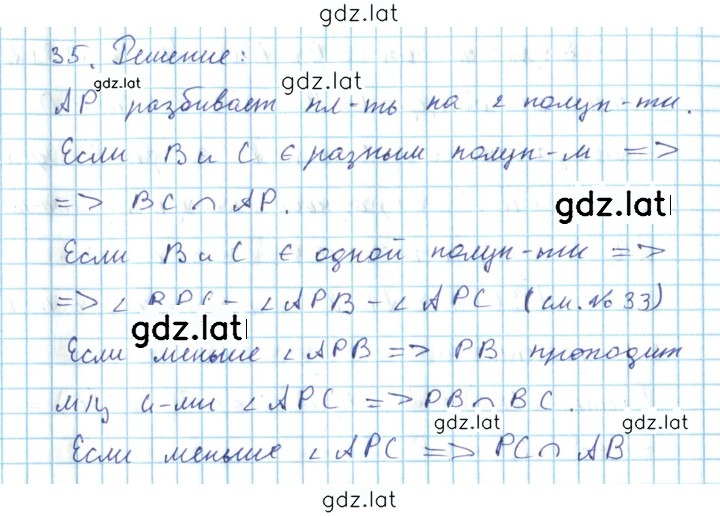 gdz.lat
35. Решение:
gdz.lat gdz.lat
AP разбивает пл-ть на 2 полуп-ти.
Если B и C ∈ разным полуп-м =>
=> BC ∩ AP.
gdz.lat
Если B и C ∈ одной полуп-ти =>
=> ∠ - ∠APB - ∠APC (см. №33)
gdz.lat
Если меньше ∠APB => PB проходит
м/ц ∠APC => PB ∩ BC.
gdz.lat gdz.lat
Если меньше ∠APC => PC ∩ AB
gdz.lat